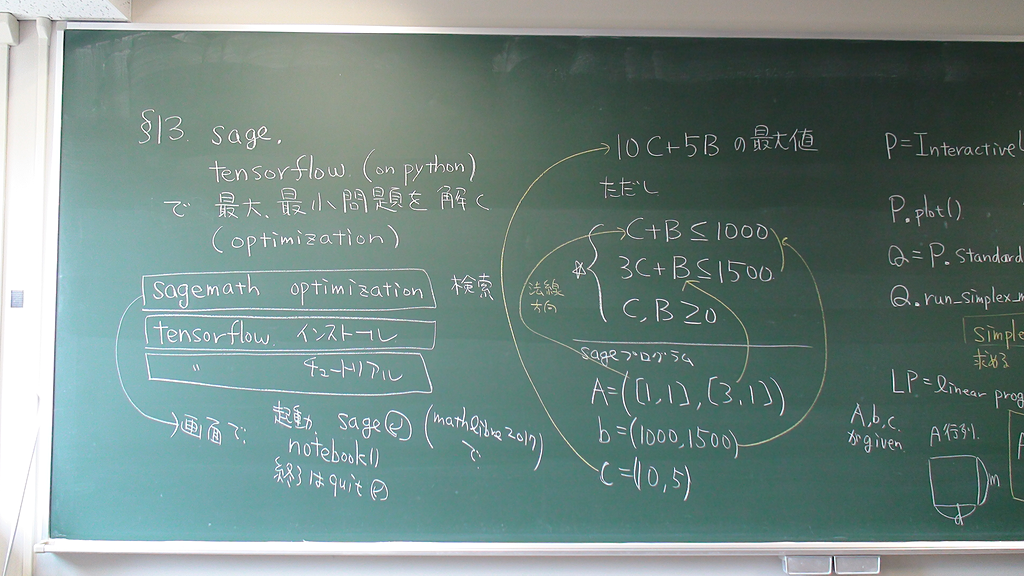 §13. sage.
tensorflow (on python)
で 最大、最小問題を解く
(optimization)
sagemath optimization 検索
tensorflow インストール
〃 チュートリアル
画面で 起動 sage (mathlibre2017)で
notebook()
終了はquit
10C+5B の最大値
ただし
C+B≦1000
3C+B≦1500
C,B≧0
法線
方向
sageプログラム
A=([1,1],[3,1])
b=(1000,1500)
c=(10,5)
P=Interactive
P.plot()
Q=P.standard
Q.run_simplex_m
simple
求める
LP=linear prog
A,b,c.
がgiven
A行列.
m
d